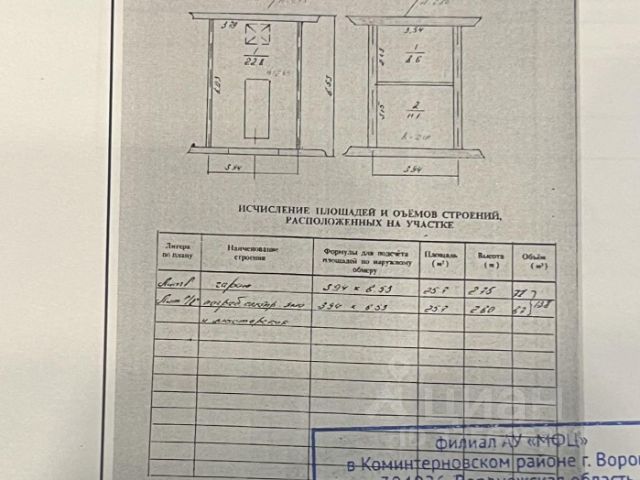 3,94
1
22.8
6.53
1
8.6
2
3.94
3.94
ИСЧИСЛЕНИЕ ПЛОЩАДЕЙ И ОЪЁМОВ СТРОЕНИЙ,
РАСПОЛОЖЕННЫХ НА УЧАСТКЕ
Литера по плану
Наименование строения
Формулы для подсчёта площадей по наружному обмеру
Площадь (м²)
Высота (м)
Объём (м³)
гараж 3.94 x 6.53 25.7 2.75 71
3.94 x 6.53 25.7 2.60 67
и мастерская
циан
филиал АУ «МФЦ»
в Коминтерновском районе г. Воро